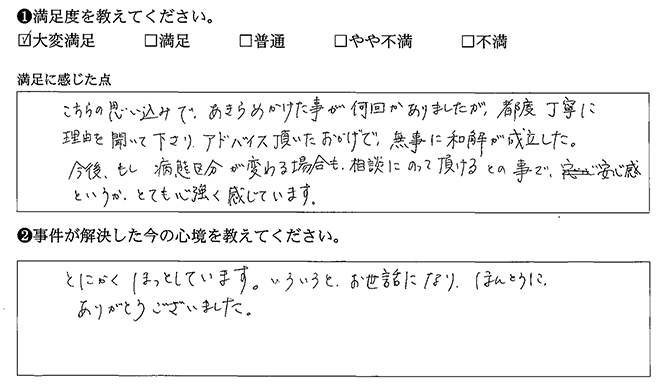 ❶満足度を教えてください。
☑大変満足 □満足 □普通 □やや不満 □不満
満足に感じた点
こちらの思い込みで、あきらめかけた事が何回かありましたが、都度丁寧に
理由を聞いて下さり、アドバイス頂いたおかげで、無事に和解が成立した。
今後、もし病態区分が変わる場合も、相談にのって頂けるとの事で、安心感
というか、とても心強く感じています。
❷事件が解決した今の心境を教えてください。
とにかくほっとしています。いろいろと、お世話になり、ほんとうに、
ありがとうございました。